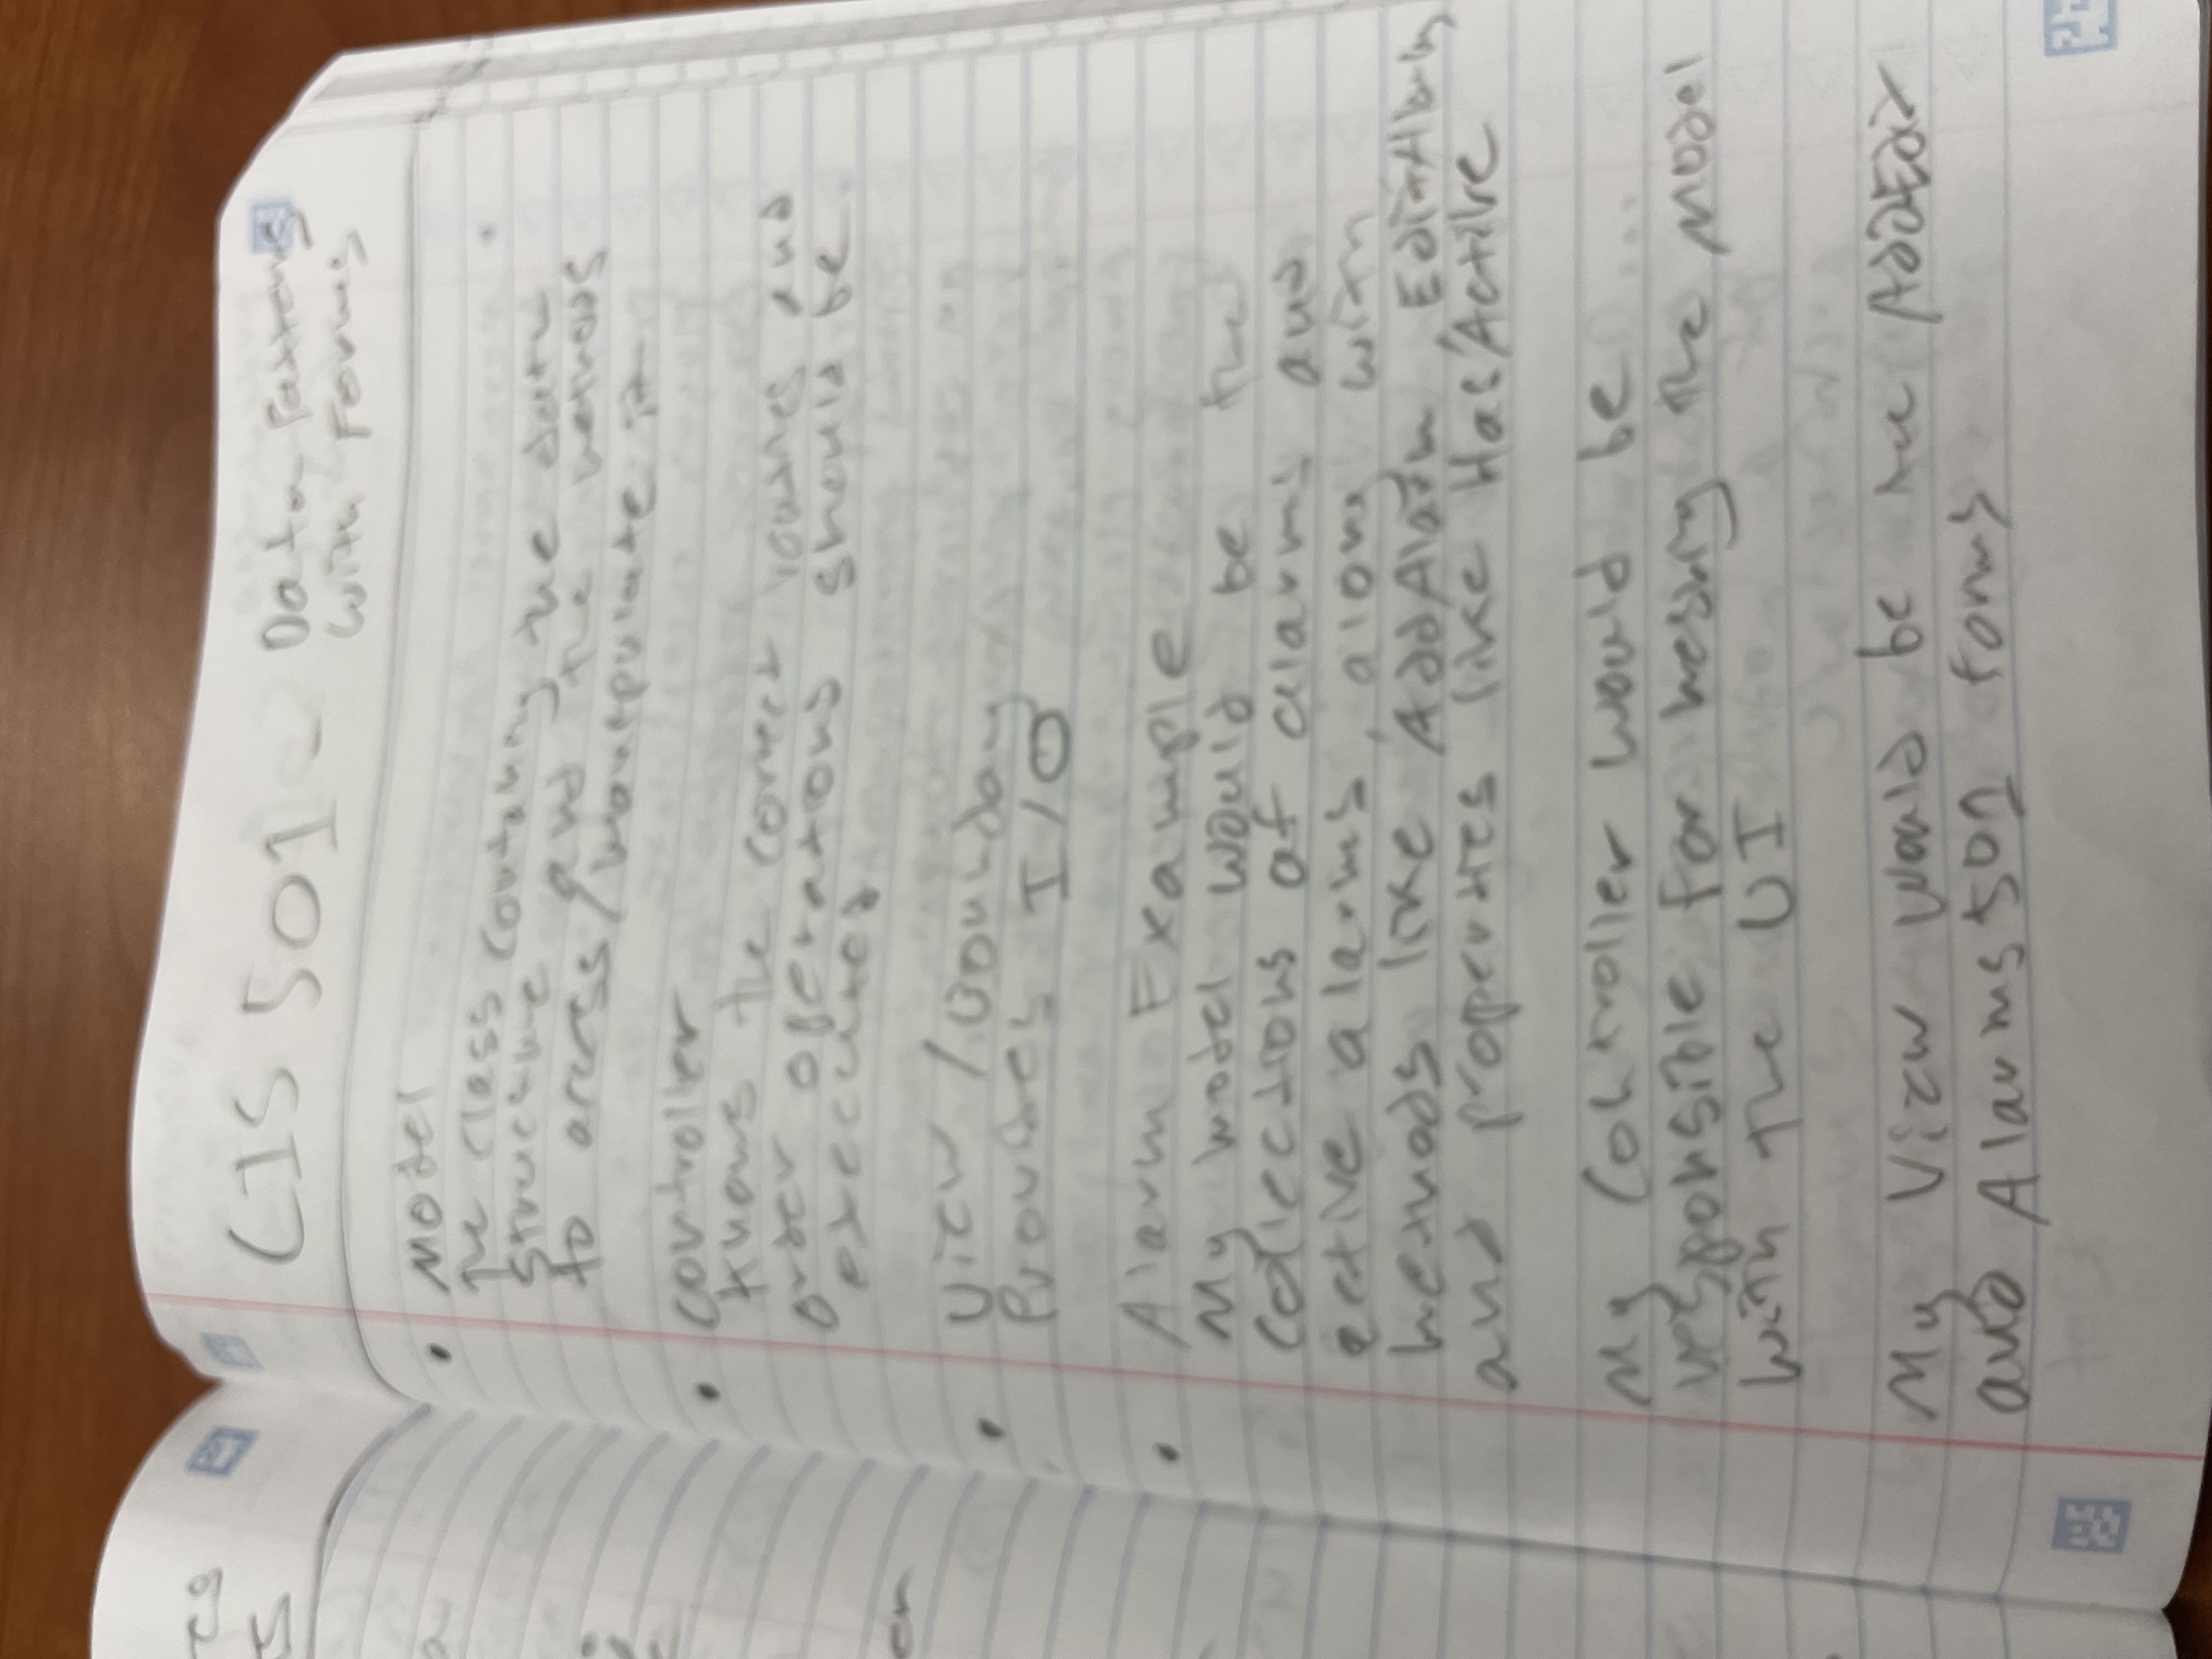 CIS 501 - Data Patterns
with Forms
• Model
The class containing the data
structure and the methods
to access/manipulate it
• Controller
knows the correct routines and
order operations should be
executed
• View / Boundary
Provides I/O
• Alarm Example
My model would be the
collections of alarms and
active alarms, along with
methods like AddAlarm, EditAlarm,
and properties like HasActive
My Controller would be ...
responsible for meshing the Model
with the UI
My View would be the AddEdit
and Alarms501 forms